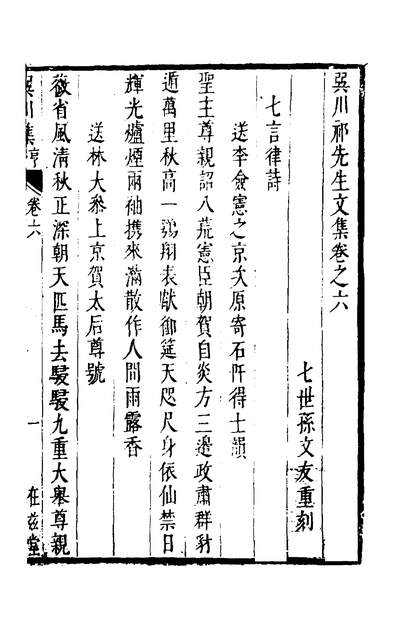 巽川祁先生文集卷之六
七世孫文友重刻
七言律詩
送李僉憲之京次原寄石阡得士韻
聖主尊親詔八荒憲臣朝賀自炎方三邊政肅群豺
遁萬里秋高一鶚翔表獻御筵天咫尺身依仙禁日
輝光爐煙兩袖携來滿散作人間雨露香
送林大叅上京賀太后尊號
薇省風清秋正深朝天匹馬去駸駸九重大舉尊親
巽川集 亨 卷六 一 在茲堂